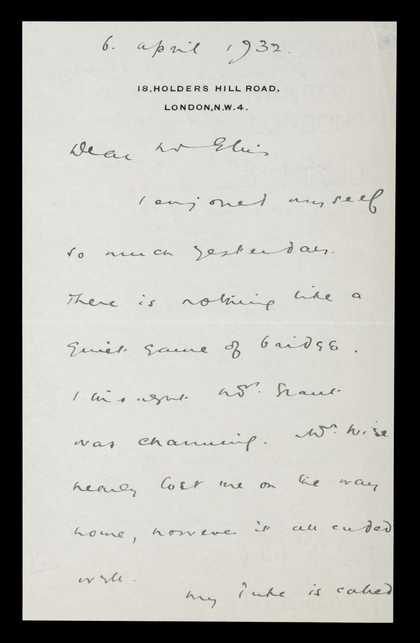 6. april 1932.
18, HOLDERS HILL ROAD,
LONDON, N.W.4.
Dear Mr Ellis
I enjoyed myself
so much yesterday.
There is nothing like a
quiet game of bridge.
I thought Mr. Grant
was charming. Mr. Wise
nearly lost me on the way
home, however it all ended
well.
my is called